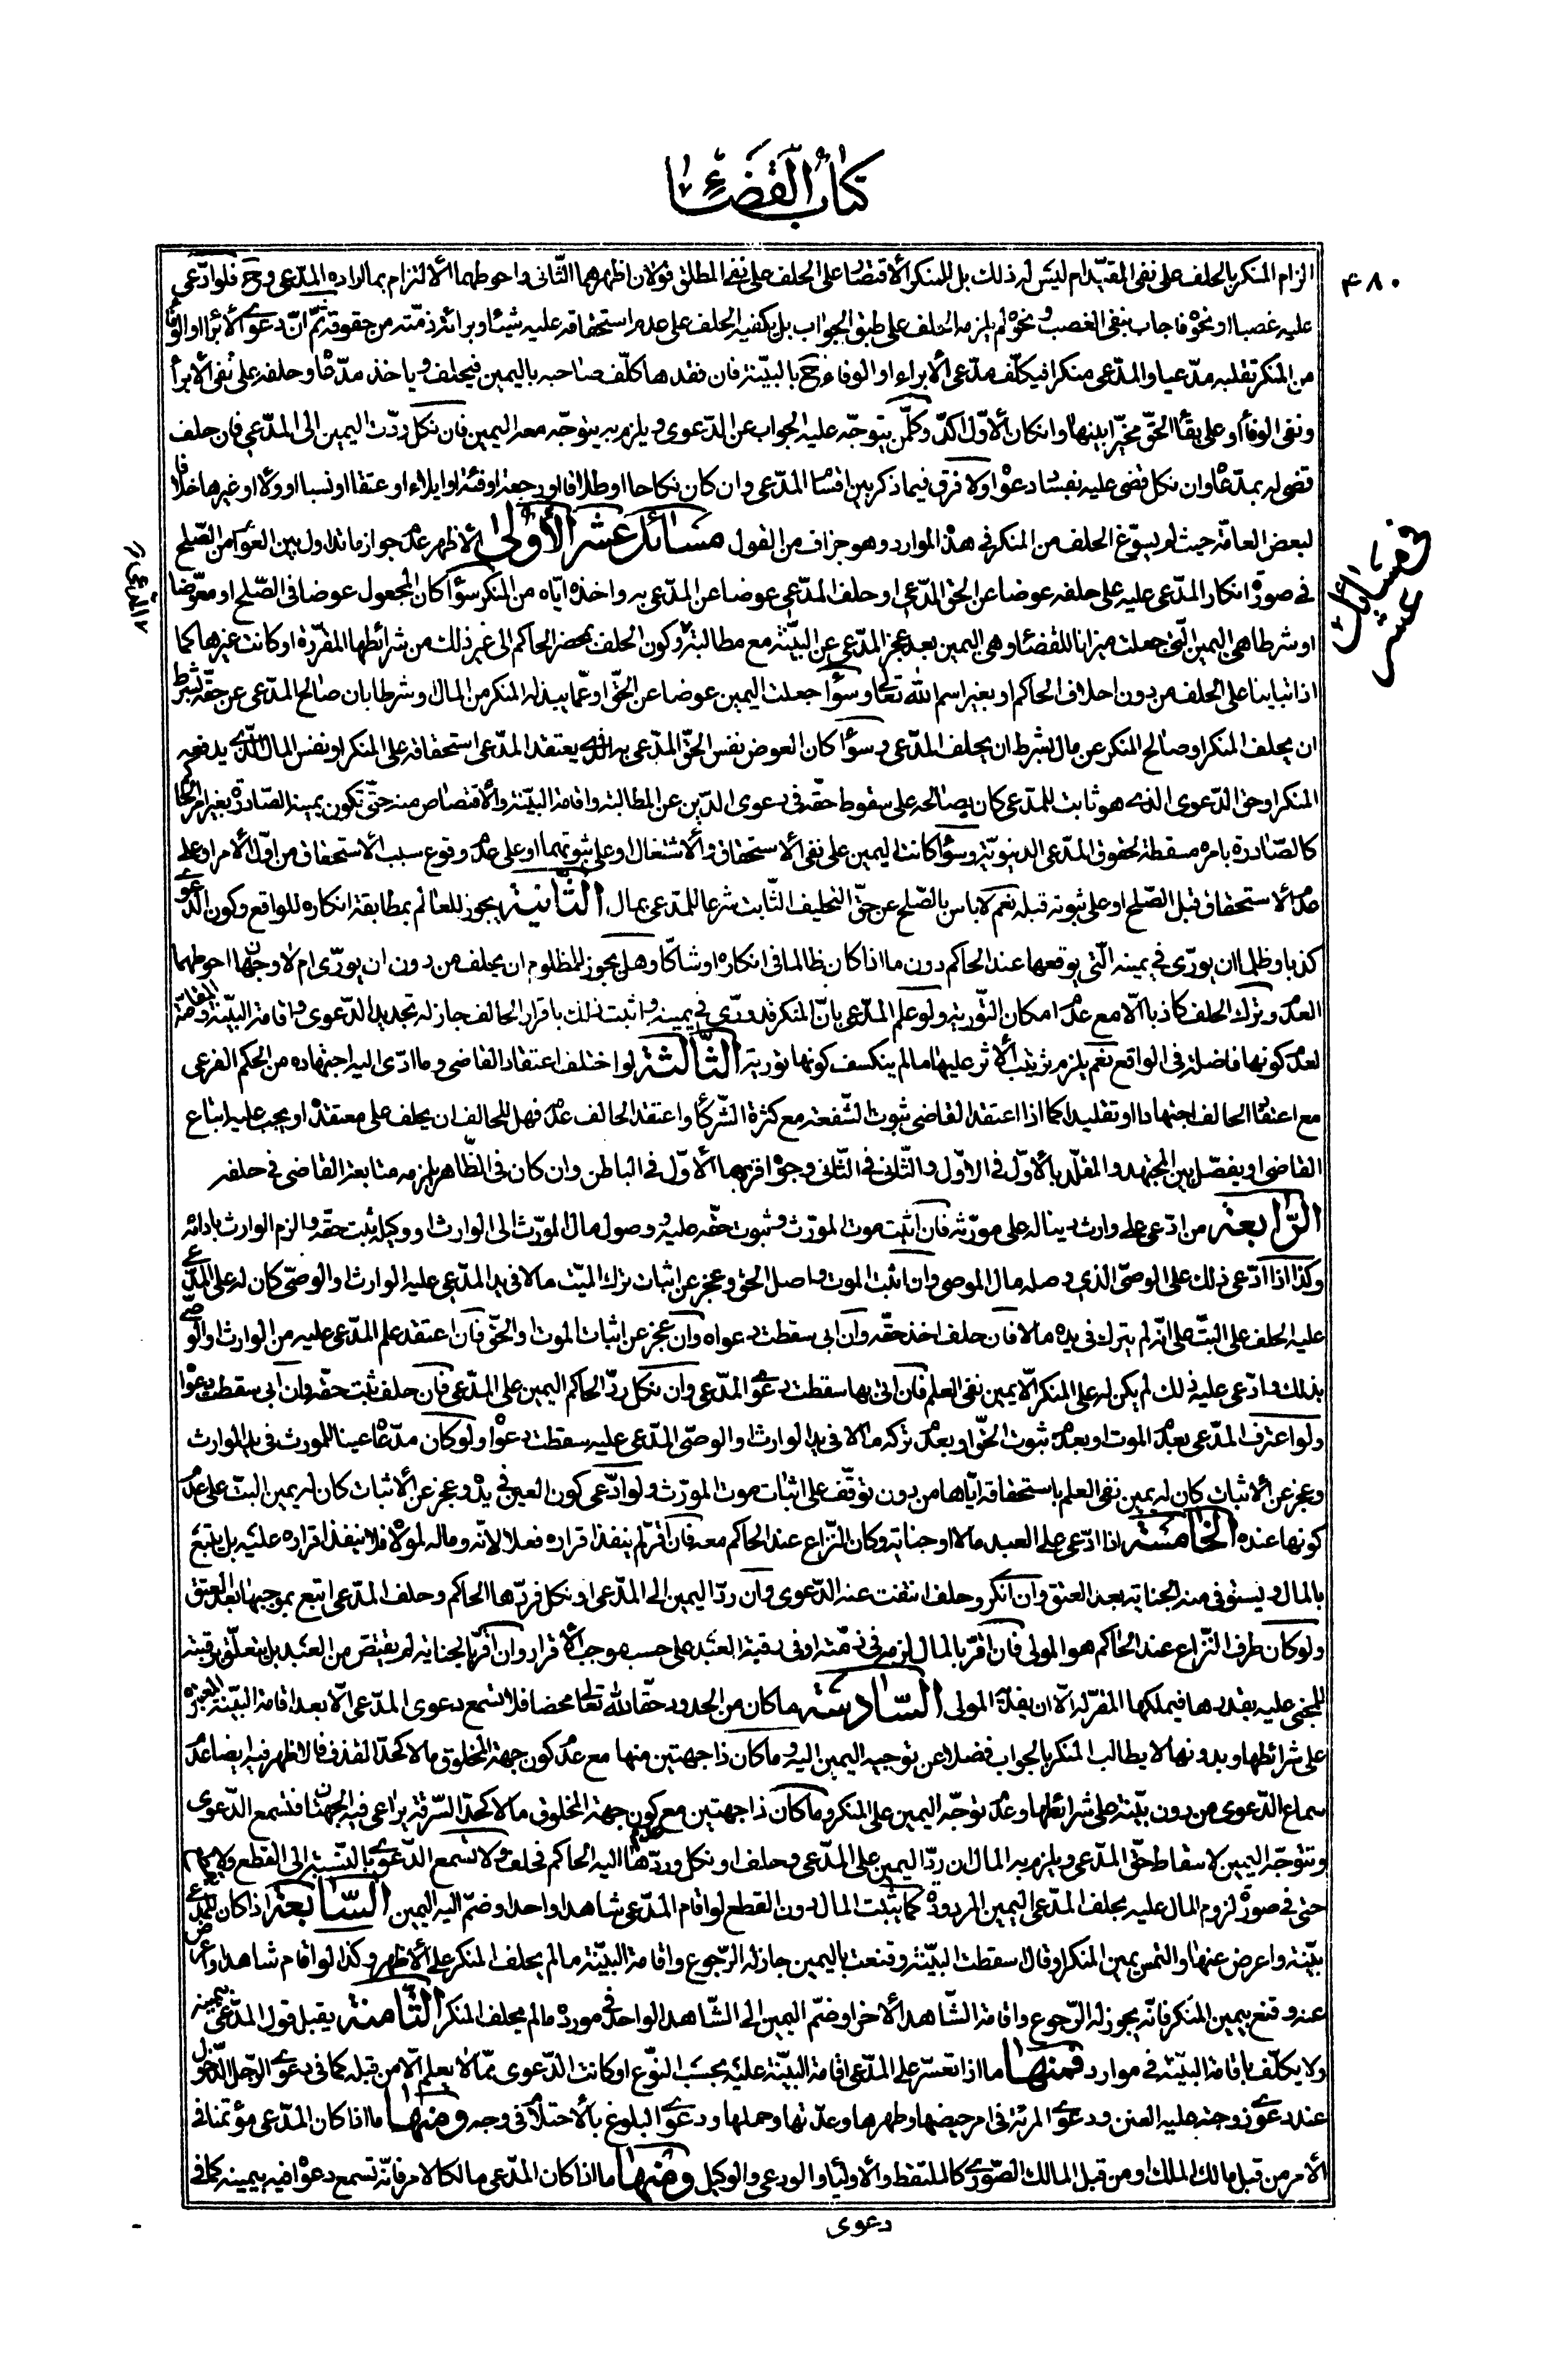 كتاب القضاء
۴۸۰
الزام المنكر بالحلف على نفى المقيّد ام ليس له ذلك بل للمنكر الاقتصار على الحلف على نفى المطلق قولان اظهرهما الثّانى واحوطهما الالتزام بما اراده المدّعى وح فلو ادّعى
عليه غصبا او نحوه فاجاب بنفى الغصب ونحوه لم يلزمه الحلف على طبق الجواب بل يكفيه الحلف على عدم استحقاقه عليه شيئا وبرائة ذمّته من حقوقه ثمّ انّ دعوى الابراء او الوفاء
من المنكر تقلبه مدّعيا والمدّعى منكرا فيكلّف مدّعى الابراء او الوفاء ح بالبيّنة فان فقدها كلّف صاحبه باليمين فيحلف وياخذ مدّعاه وحلفه على نفى الابراء
ونفى الوفاء او على بقاء الحقّ مخيّرا بينها وانكان الاوّل اكد وكلّ من يتوجّه عليه الجواب عن الدّعوى ويلزم به يتوجّه معه اليمين فان نكل ردّت اليمين الى المدّعى فان حلف
قضى له بمدّعاه وان نكل قضى عليه بفساد دعواه ولا فرق فيما ذكر بين اقسام المدّعى وان كان نكاحا او طلاقا او رجعة او فئة او ايلاء او عتقا او نسبا او ولاء او غيرها خلافا
لبعض العامّة حيث لم يسوّغ الحلف من المنكر فى هذه الموارد وهو جزاف من القول مسائل عشر الاولى الاظهر عدم جواز ما تداول بين العوام من الصّلح
فى صورة انكار المدّعى عليه على حلفه عوضا عن الحقّ المدّعى او حلف المدّعى عوضا عن المدّعى به واخذه ايّاه من المنكر سواء كان المجعول عوضا فى الصّلح او معوّضا
او شرطا هى اليمين الّتى جعلت ميزانا للقضاء وهى اليمين بعد عجز المدّعى عن البيّنة مع مطالبته وكون الحلف بمحضر الحاكم الى غير ذلك من شرائطها المقرّرة او كانت غيرها كما
اذا تبانيا على الحلف من دون احلاف الحاكم او بغير اسم الله تعالى وسواء جعلت اليمين عوضا عن الحقّ او عمّا يبذله المنكر من المال او شرطا بان صالح المدّعى عن حقّه بشرط
ان يحلف المنكر او صالح المنكر عن مال بشرط ان يحلف المدّعى وسواء كان العوض نفس الحقّ المدّعى به الّذى يعتقد المدّعى استحقاقه على المنكر او نفس المال الّذى يدفعه
المنكر او حقّ الدّعوى الّذى هو ثابت للمدّعى كان يصالحه على سقوط حقّه فى دعوى الدّين عن المطالبة واقامة البيّنة والاقتصاص منه حتّى تكون يمينه الصّادرة بغير امر الحاكم
كالصّادرة بامره مسقطة لحقوق المدّعى الدنيويّة وسواء كانت اليمين على نفى الاستحقاق والاشتغال او على ثبوتهما او على عدم وقوع سبب الاستحقاق من اوّل الامر او على
عدم الاستحقاق قبل الصّلح او على ثبوته قبله نعم لا باس بالصّلح عن حقّ التحليف الثّابت شرعا للمدّعى بمال الثّانية يجوز للعالم بمطابقة انكاره للواقع وكون الدّعوى
كذبا وظلما ان يورّى فى يمينه الّتى يوقعها عند الحاكم دون ما اذا كان ظالما فى انكاره او شاكّا وهل يجوز للمظلوم ان يحلف من دون ان يورّى ام لا وجهان احوطهما
العدم وترك الحلف كاذبا الّا مع عدم امكان التّورية ولو علم المدّعى بانّ المنكر قد ورّى فى يمينه واثبت ذلك باقرار الحالف جاز له تجديد الدّعوى واقامة البيّنة والمقاصّة
لعدم كونها فاصلة فى الواقع نعم يلزم ترتيب الاثر عليها ما لم ينكشف كونها تورية الثّالثة لو اختلف اعتقاد القاضى وما ادّى اليه اجتهاده من الحكم الفرعى
مع اعتقاد الحالف اجتهادا او تقليدا كما اذا اعتقد القاضى ثبوت الشّفعة مع كثرة الشّركاء واعتقد الحالف عدمه فهل للحالف ان يحلف على معتقده او يجب عليه اتباع
القاضى او يفصّل بين المجتهد والمقلّد بالاوّل فى الاوّل والثّانى فى الثّانى وجوه اقربهما الاوّل فى الباطن وان كان فى الظّاهر يلزمه متابعة القاضى فى حلفه
الرّابعة من ادّعى على وارث دينا له على مورّثه فان اثبت موت المورّث وثبوت حقّه عليه ووصول مال المورّث الى الوارث او وكيله ثبت حقّه والزم الوارث بادائه
وكذا اذا ادّعى ذلك على الوصىّ الذى وصله مال الموصى وان اثبت الموت واصل الحق وعجز عن اثبات ترك الميّت مالا فى يد المدّعى عليه الوارث او الوصىّ كان له على المدّعى
عليه الحلف على البتّ على انّه لم يترك فى يده مالا فان حلف اخذ حقّه وان ابى سقطت دعواه وان عجز عن اثبات الموت او الحقّ فان اعتقد علم المدّعى عليه من الوارث او الوصىّ
بذلك وادّعى عليه ذلك لم يكن له على المنكر الّا يمين نفى العلم فان اتى بها سقطت دعوى المدّعى وان نكل ردّ الحاكم اليمين على المدّعى فان حلف ثبت حقّه وان ابى سقطت دعواه
ولو اعترف المدّعى بعدم الموت او بعدم ثبوت الحقّ او بعدم تركه مالا فى يد الوارث او الوصىّ المدّعى عليه سقطت دعواه ولو كان مدّعاه عينا للمورث فى يد الوارث
وعجز عن الاثبات كان له يمين نفى العلم باستحقاقه ايّاها من دون توقّف على اثبات موت المورّث ولو ادّعى كون العين فى يده وعجز عن الاثبات كان له يمين البتّ على عدم
كونها عنده الخامسة اذا ادّعى على العبد مالا او جناية وكان النّزاع عند الحاكم معه فان اقرّ لم ينفذ اقراره فعلا لانّه وماله لمولاه فلا ينفذ اقراره عليه بل يتبع
بالمال ويستوفى منه الجناية بعد العتق وان انكر وحلف انتفت عنه الدّعوى وان ردّ اليمين الى المدّعى او نكل فردّها الحاكم وحلف المدّعى اتبع بموجبها بعد العتق
ولو كان طرف النّزاع عند الحاكم هو المولى فان اقرّ بالمال لزمه فى ذمّته او فى رقبة العبد على حسب موجب الاقرار وان اقرّ بالجناية لم يقتص من العبد بل يتعلّق برقبته
للمجنى عليه بقدرها فيملكها المقرّ له الّا ان يفديه المولى السّادسة ما كان من الحدود حقّا لله تعالى محضا فلا تسمع دعوى المدّعى الّا بعد اقامة البيّنة المعتبرة
على شرائطها وبدونها لا يطالب المنكر بالجواب فضلا عن توجيه اليمين اليه وما كان ذا جهتين منها مع عدم كون جهة المخلوق مالا كحدّ القذف فالاظهر فيه ايضا عدم
سماع الدّعوى من دون بيّنة على شرائطها وعدم توجّه اليمين على المنكر وما كان ذا جهتين مع كون جهة المخلوق مالا كحدّ السّرقة يراعى فيه الجهتان فتسمع الدّعوى
وتتوجّه اليمين لاسقاط حقّ المدّعى ويلزم به المال ان ردّ اليمين على المدّعى وحلف او نكل وردّها الحاكم اليه فحلف ولا تسمع الدّعوى بالنّسبة الى القطع
حتّى فى صورة لزوم المال عليه بحلف المدّعى اليمين المردودة كما يثبت المال دون القطع لو اقام المدّعى شاهدا واحدا وضمّ اليه اليمين السّابعة اذا كان للمدّعى
بيّنة واعرض عنها والتمس يمين المنكر او قال اسقطت البيّنة وقنعت باليمين جاز له الرّجوع واقامة البيّنة ما لم يحلف المنكر على الاظهر وكذا لو اقام شاهدا واعرض
عنه وقنع بيمين المنكر فانّه يجوز له الرّجوع واقامة الشّاهد الاخر او ضمّ اليمين الى الشّاهد الواحد فى مورده ما لم يحلف المنكر الثّامنة يقبل قول المدّعى بيمينه
ولا يكلّف باقامة البيّنة فى موارد فمنها ما اذا تعسّر على المدّعى اقامة البيّنة عليه بحسب النّوع او كانت الدّعوى ممّا لا يعلم الّا من قبله كما فى دعوى الرّجل الدّخول
عند دعوى زوجته عليه العنن ودعوى المرئة فى امر حيضها وطهرها وعدّتها وحملها ودعوى البلوغ بالاحتلام فى وجه ومنها ما اذا كان المدّعى مؤتمنا فى
الامر من قبل مالك الملك او من قبل المالك الصّورى كالملتقط والاولياء والودعى والوكيل ومنها ما اذا كان المدّعى مالكا للامر فانّه تسمع دعواه فيه بيمينه كما فى
دعوى
فى مسائل
عشر